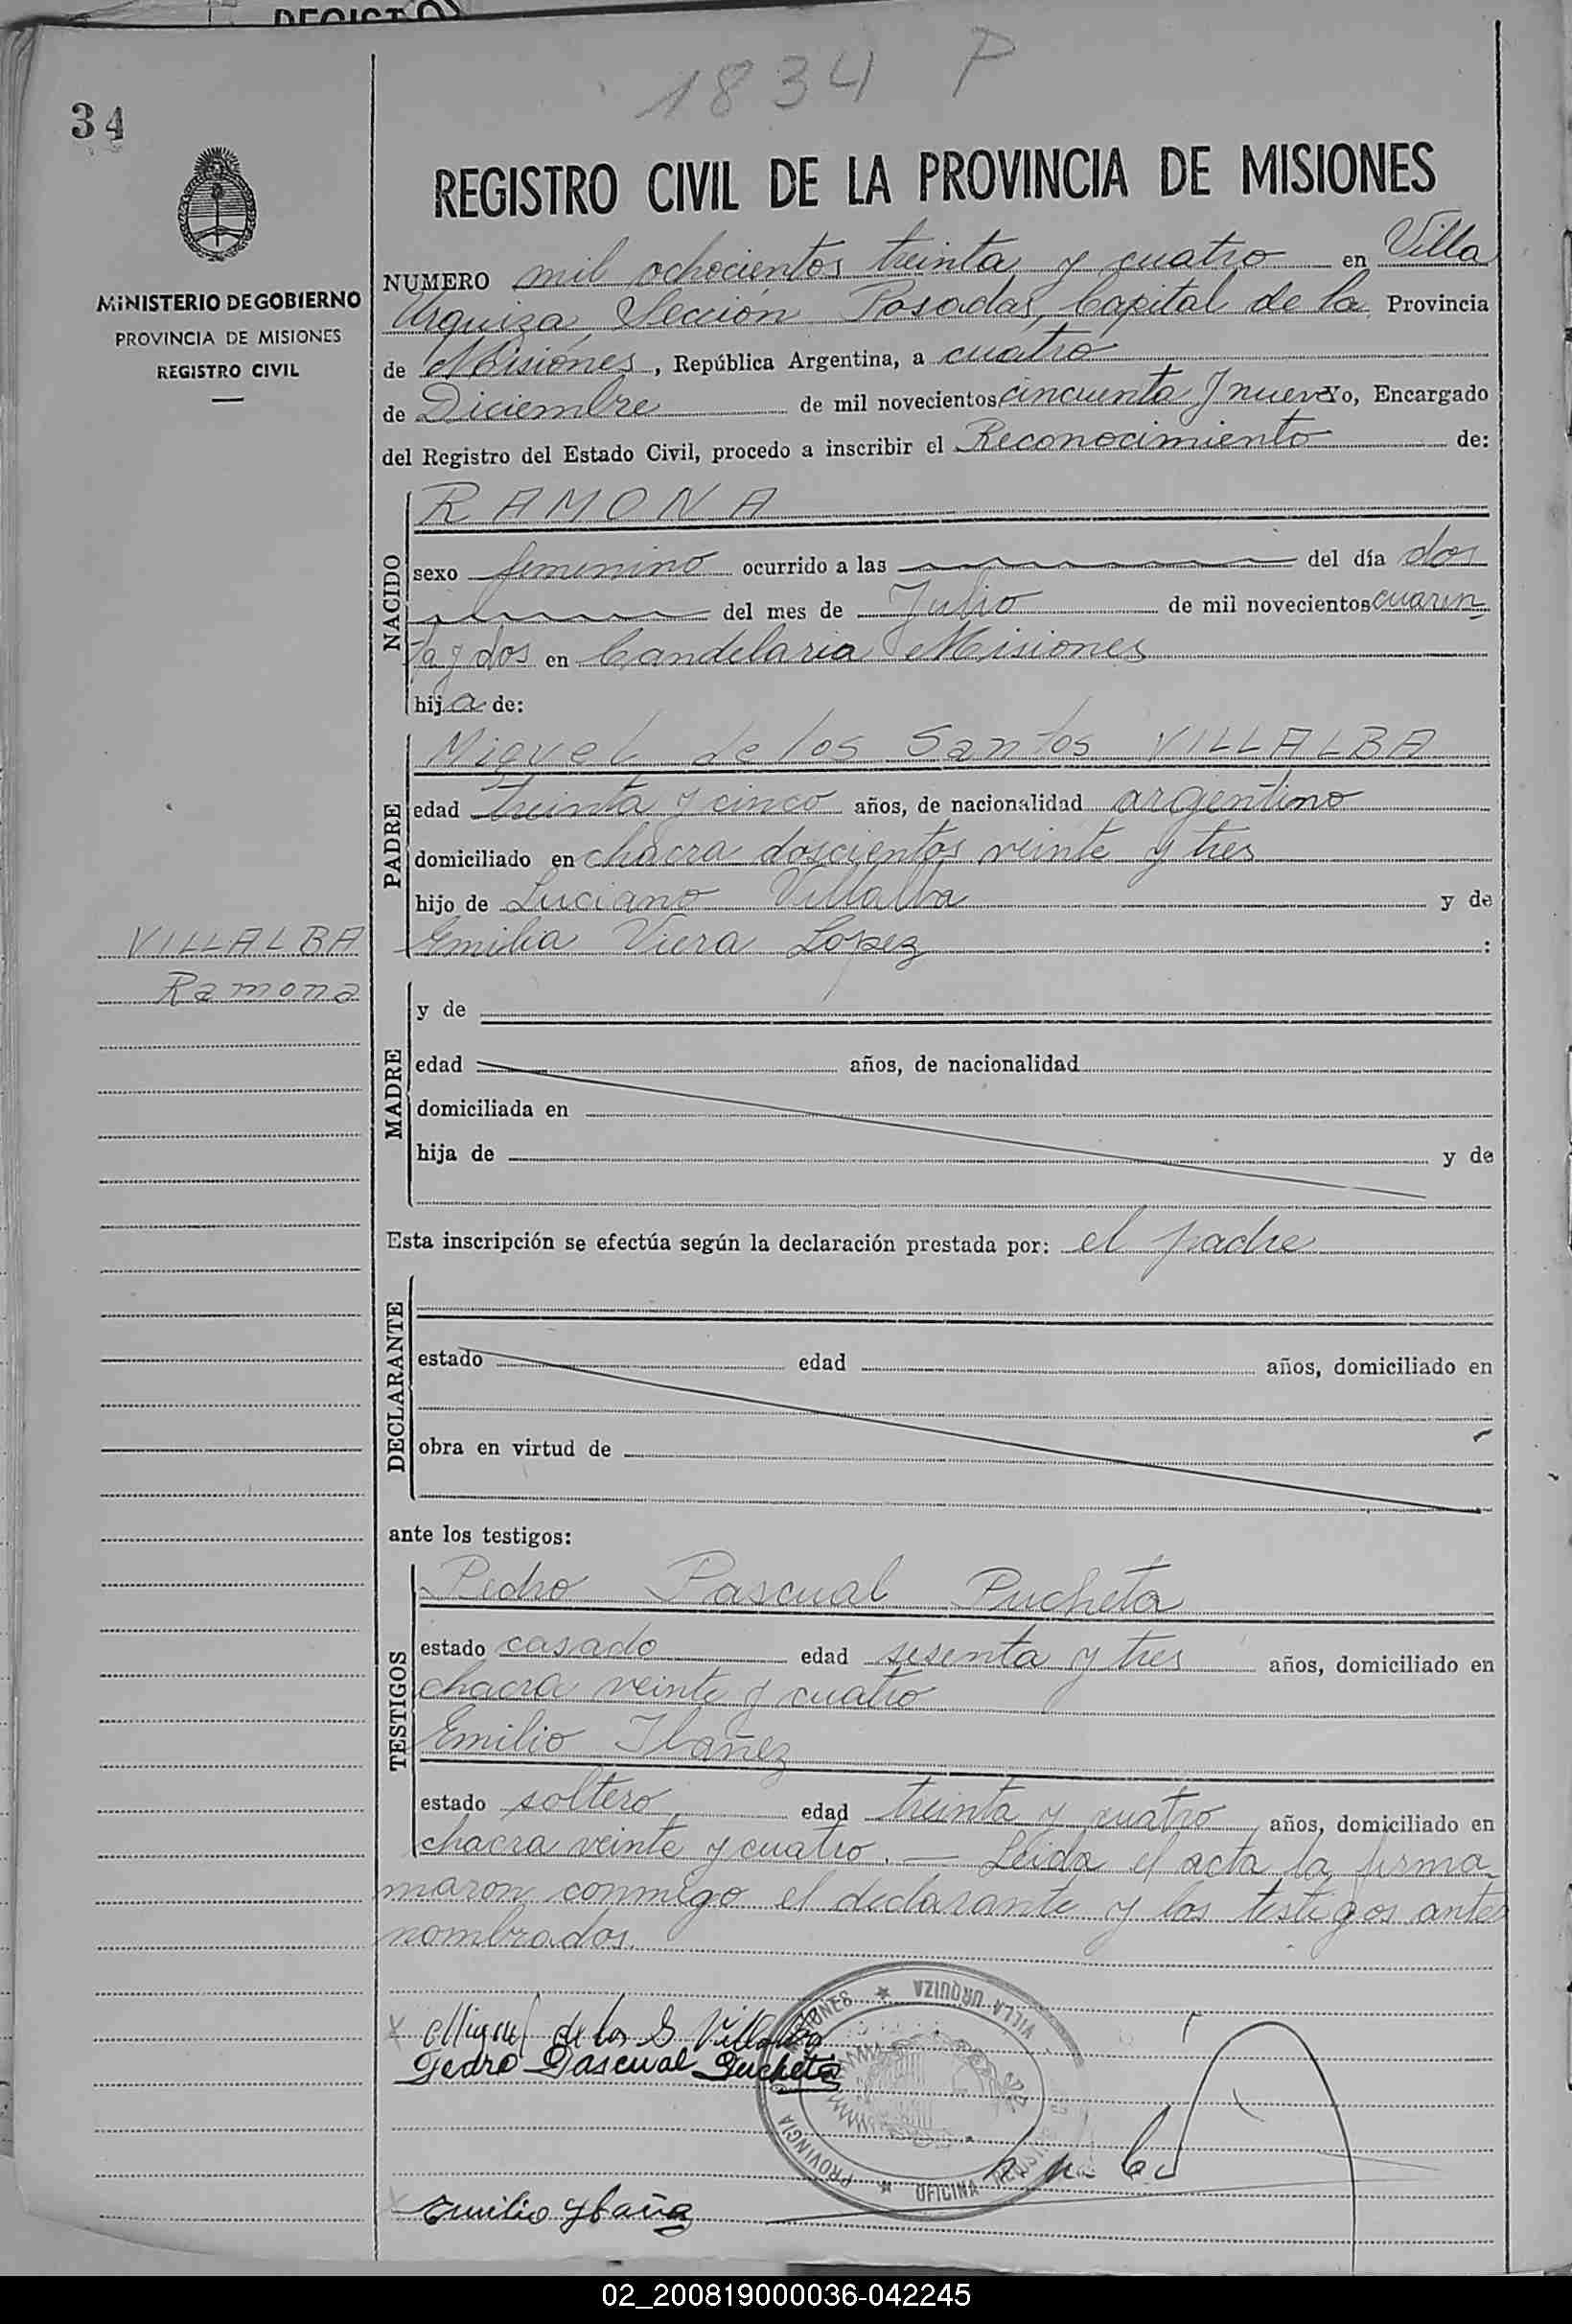 REGISTRO
1834 P
34
REGISTRO CIVIL DE LA PROVINCIA DE MISIONES
MINISTERIO DE GOBIERNO
PROVINCIA DE MISIONES
REGISTRO CIVIL
NUMERO mil ochocientos treinta y cuatro en Villa
Urquiza Sección Posadas, Capital de la Provincia
de Misiones, República Argentina, a cuatro
de Diciembre de mil novecientos cincuenta y nueve Yo, Encargado
del Registro del Estado Civil, procedo a inscribir el Reconocimiento de:
NACIDO
RAMONA
sexo femenino ocurrido a las del día dos
del mes de Julio de mil novecientos cuaren
ta y dos en Candelaria Misiones
hija de:
PADRE
Miguel de los Santos VILLALBA
edad treinta y cinco años, de nacionalidad argentino
domiciliado en chacra doscientos veinte y tres
hijo de Luciano Villalba y de
Emilia Viera Lopez :
VILLALBA
Ramona
MADRE
y de
edad años, de nacionalidad
domiciliada en
hija de y de
Esta inscripción se efectúa según la declaración prestada por: el padre
DECLARANTE
estado edad años, domiciliado en
obra en virtud de
ante los testigos:
TESTIGOS
Pedro Pascual Pucheta
estado casado edad sesenta y tres años, domiciliado en
chacra veinte y cuatro
Emilio Ibañez
estado soltero edad treinta y cuatro años, domiciliado en
chacra veinte y cuatro. — Leida el acta la firma
maron conmigo el declarante y los testigos ante
nombrados.
Miguel de los S Villalba
Pedro Pascual Pucheta
Emilio Ybañez
PROVINCIA MISIONES ★ VILLA URQUIZA
★ OFICINA REGIS
02_200819000036-042245